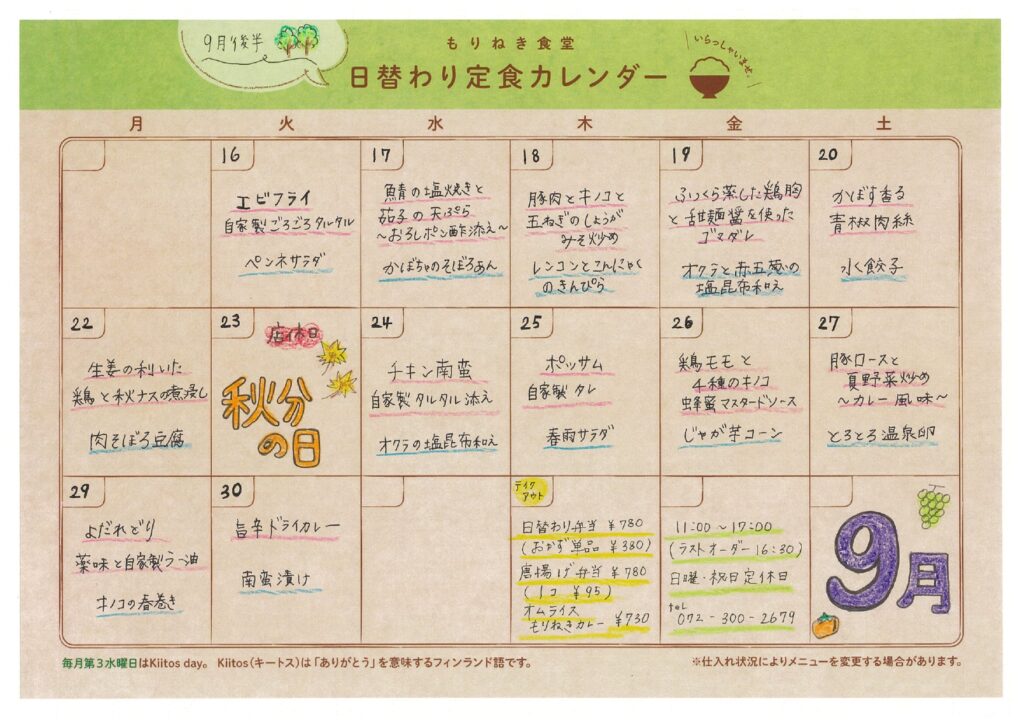 9月後半
もりねき食堂
日替わり定食カレンダー
いらっしゃいませ。
月 火 水 木 金 土
16
エビフライ
自家製ごろごろタルタル
ペンネサラダ
17
鯖の塩焼きと
茄子の天ぷら
~おろしポン酢添え~
かぼちゃのそぼろあん
18
豚肉とキノコと
玉ねぎのしょうが
みそ炒め
レンコンとこんにゃく
のきんぴら
19
ふっくら蒸した鶏胸
と甜麺醤を使った
ゴマダレ
オクラと赤玉葱の
塩昆布和え
20
かぼす香る
青椒肉絲
水餃子
22
生姜の利いた
鶏と秋ナスの煮浸し
肉そぼろ豆腐
23
店休日
秋分
の日
24
チキン南蛮
自家製タルタル添え
オクラの塩昆布和え
25
ポッサム
自家製タレ
春雨サラダ
26
鶏モモと
4種のキノコ
蜂蜜マスタードソース
じゃが芋コーン
27
豚ロースと
夏野菜炒め
~カレー風味~
とろとろ温泉卵
29
よだれどり
薬味と自家製ラー油
キノコの春巻き
30
旨辛ドライカレー
南蛮漬け
テイク
アウト
日替わり弁当 ¥780
(おかず単品 ¥380)
唐揚げ弁当 ¥780
(1コ ¥95)
オムライス
もりねきカレー ¥730
11:00~17:00
(ラストオーダー 16:30)
日曜・祝日定休日
tel
072-300-2679
9月
毎月第3水曜日はKiitos day。 Kiitos(キートス)は「ありがとう」を意味するフィンランド語です。
※仕入れ状況によりメニューを変更する場合があります。